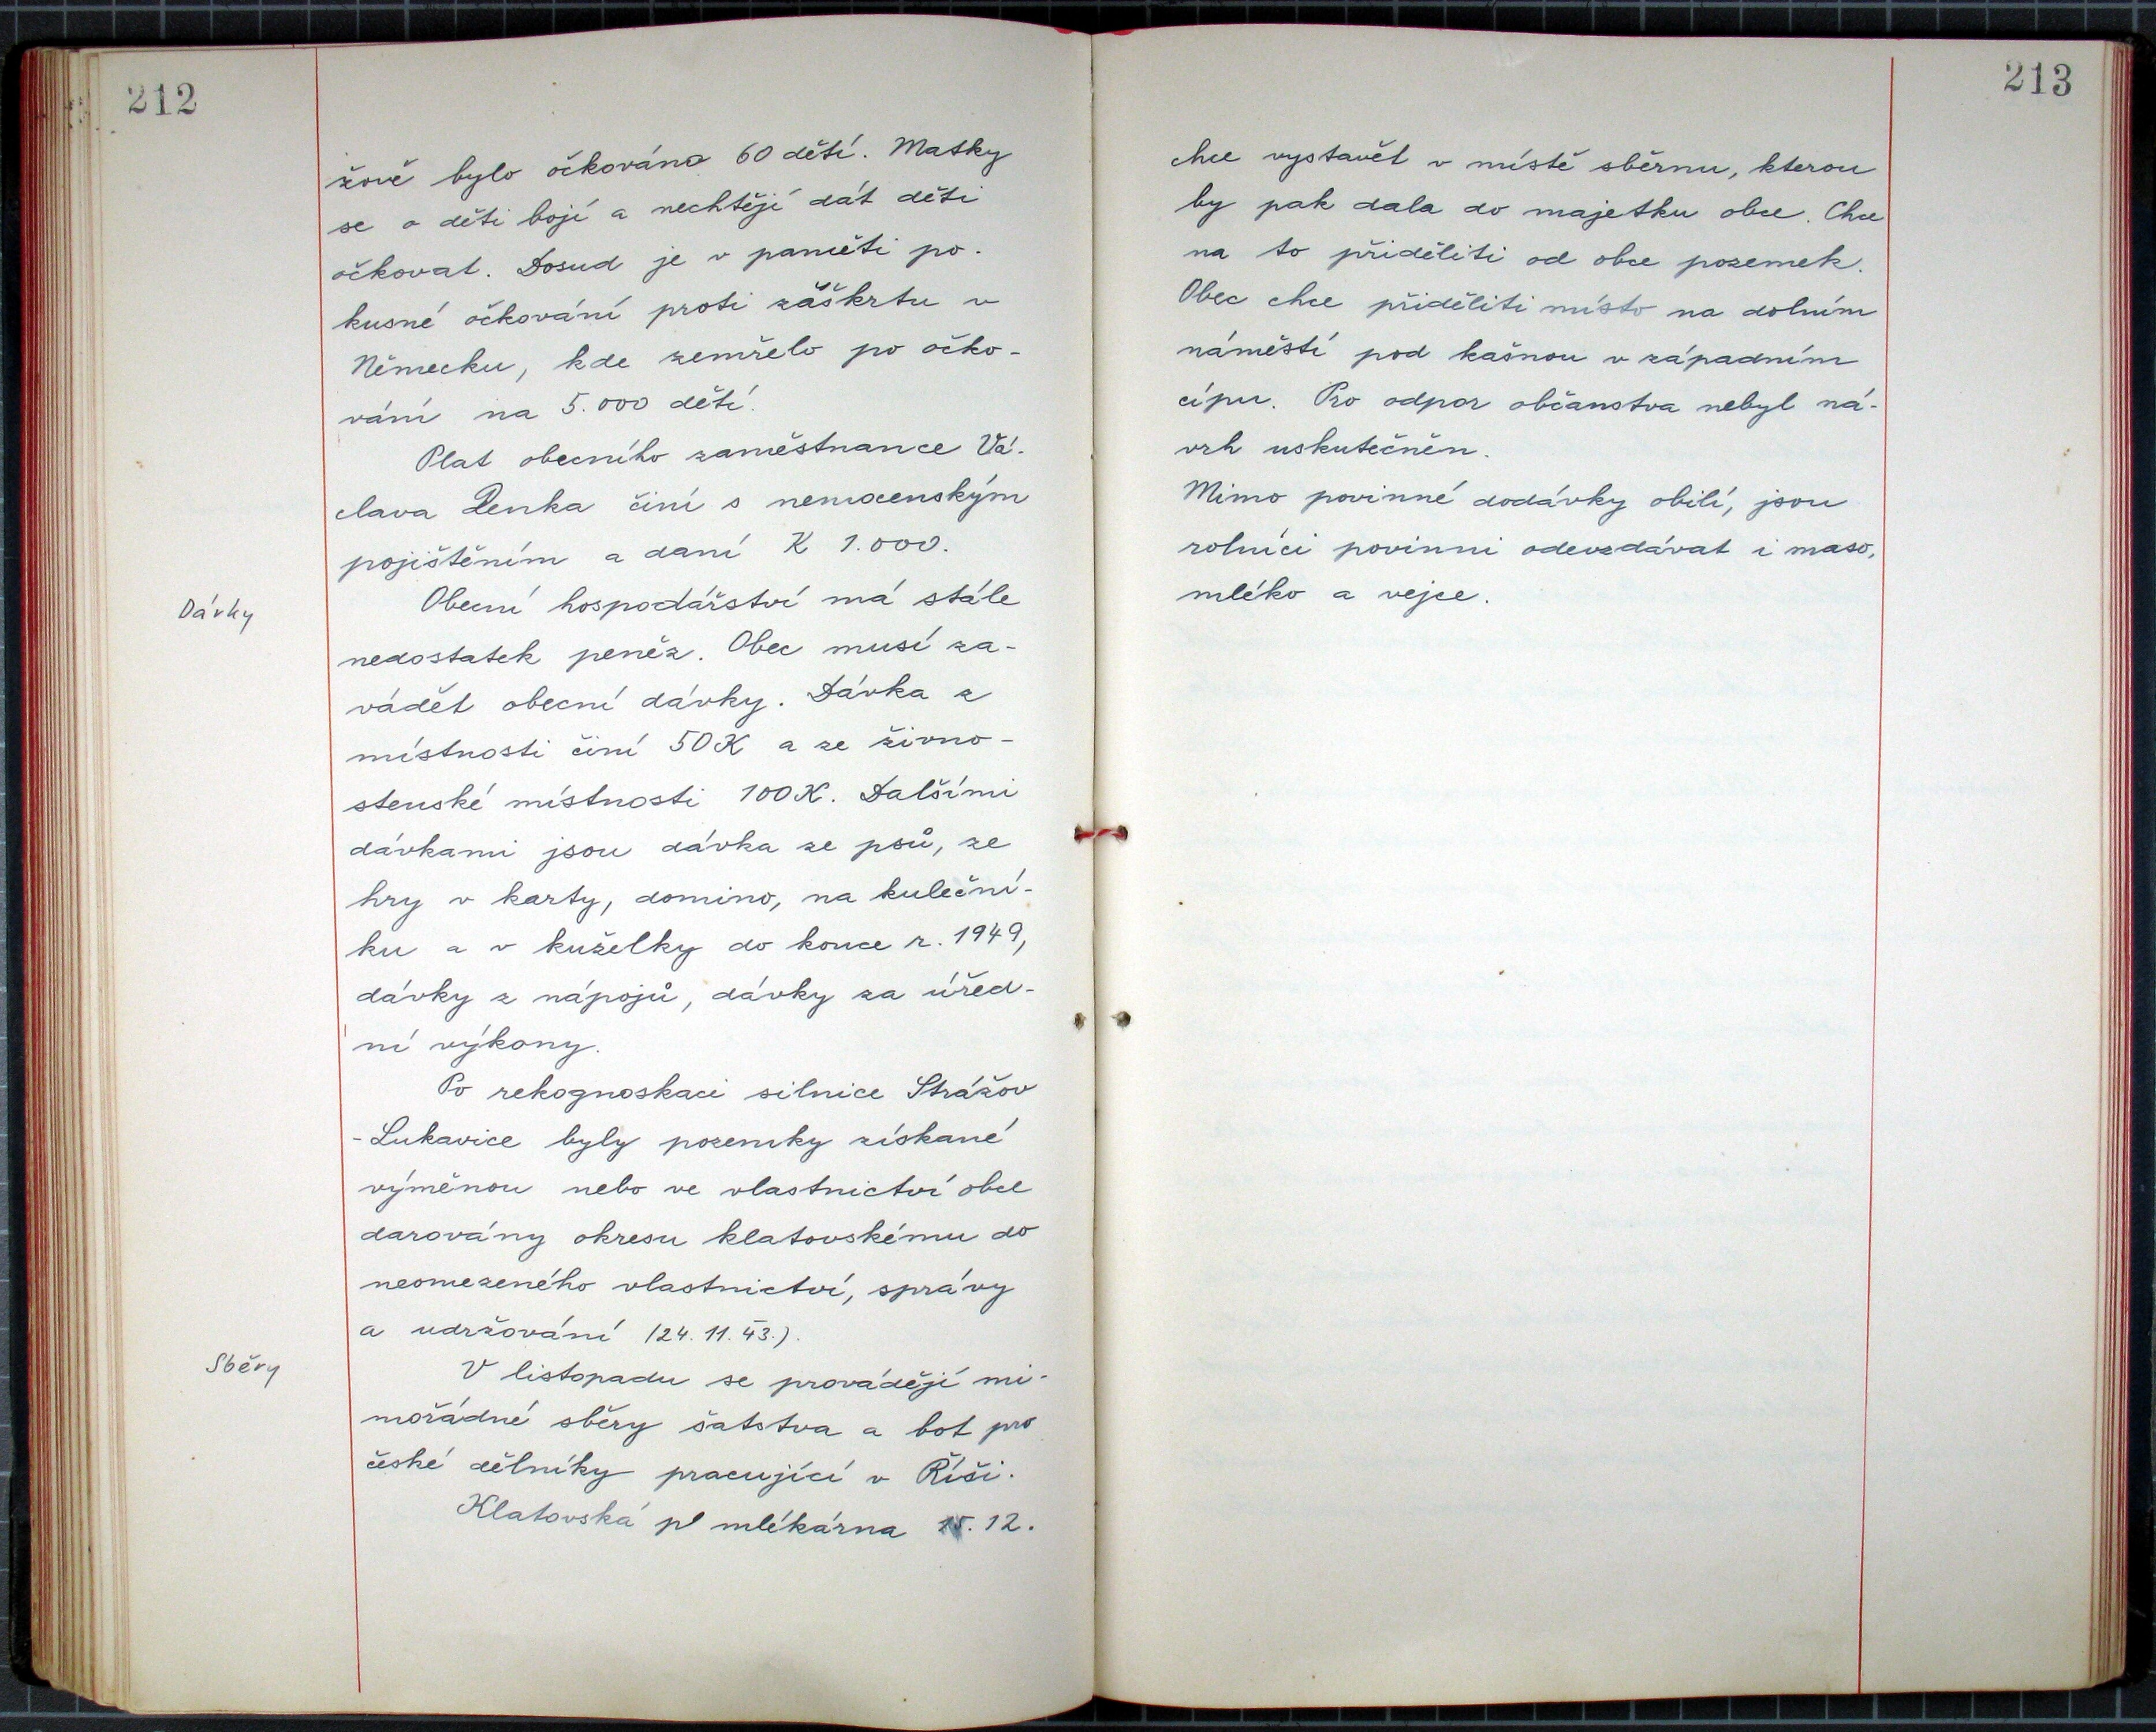 212
žově bylo očkováno 60 dětí. Matky
se o děti bojí a nechtějí dát děti
očkovat. Dosud je v paměti po-
kusné očkování proti záškrtu v
Německu, kde zemřelo po očko-
vání na 5.000 dětí.
Plat obecního zaměstnance Vá-
clava Denka činí s nemocenským
pojištěním a daní K 1.000.
Dávky
Obecní hospodářství má stále
nedostatek peněz. Obec musí za-
vádět obecní dávky. Dávka z
místnosti činí 50 K a ze živno-
stenské místnosti 100 K. Dalšími
dávkami jsou dávka ze psů, ze
hry v karty, domino, na kuleční-
ku a v kuželky do konce r. 1949,
dávky z nápojů, dávky za úřed-
ní výkony.
Po rekognoskaci silnice Strážov
-Lukavice byly pozemky získané
výměnou nebo ve vlastnictví obce
darovány okresu klatovskému do
neomezeného vlastnictví, správy
a udržování (24. 11. 43.).
Sběry
V listopadu se provádějí mi-
mořádné sběry šatstva a bot pro
české dělníky pracující v Říši.
Klatovská mlékárna 15. 12.
213
chce vystavět v místě sběrnu, kterou
by pak dala do majetku obce. Chce
na to přiděliti od obce pozemek.
Obec chce přiděliti místo na dolním
náměstí pod kašnou v západním
cípu. Pro odpor občanstva nebyl ná-
vrh uskutečněn.
Mimo povinné dodávky obilí, jsou
rolníci povinni odevzdávat i maso,
mléko a vejce.